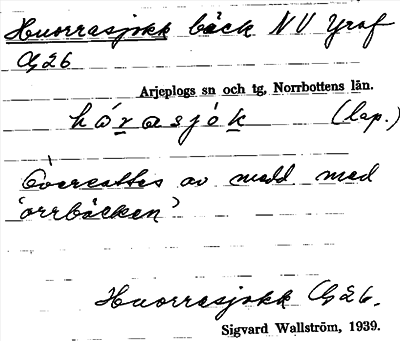 Huorrasjokk bäck NV Graf
Cg26
Arjeplogs sn och tg, Norrbottens län.
hórasjók (lap.)
Översattes av medd med
'orrbäcken'
Huorrasjokk Cg26.
Sigvard Wallström, 1939.